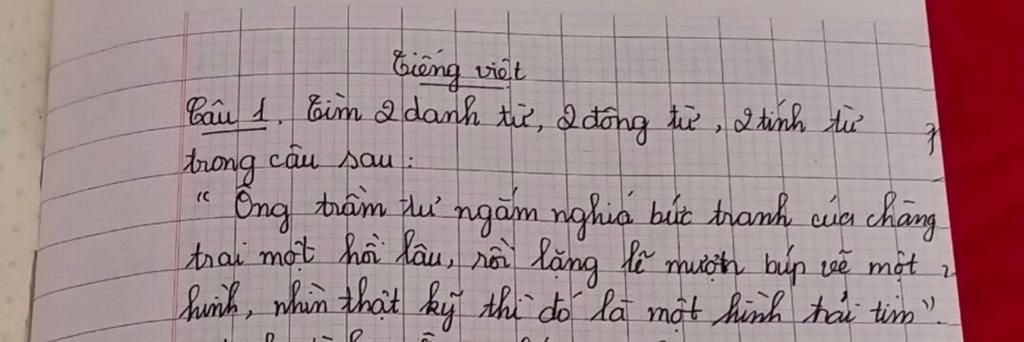 Tiếng việt
Câu 1. Tìm 2 danh từ, 2 động từ, 2 tính từ
trong câu sau:
"Ông trầm tư ngắm nghiá bức tranh của chàng
trai một hồi lâu, rồi lặng lẽ mượn búp vẽ một
hình, nhìn thật kỹ thì đó là một hình trái tim".